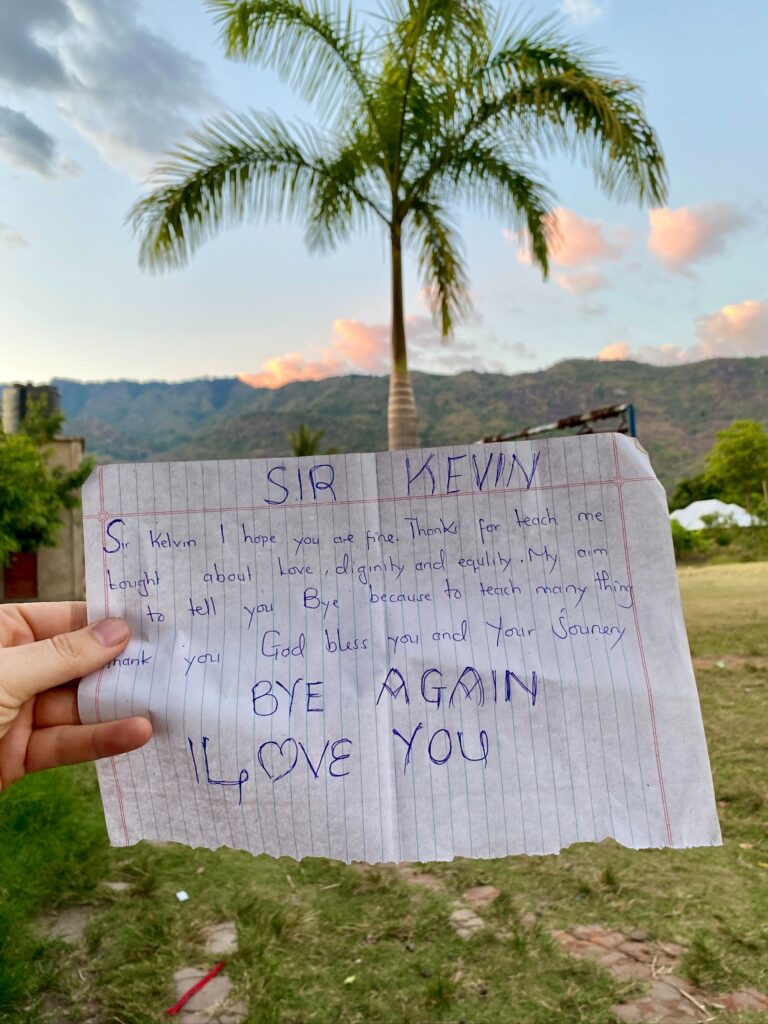 SIR KEVIN
Sir Kelvin I hope you are fine. Thanks for teach me
tought about Love, diginity and equlity. My aim
to tell you Bye because to teach many thing
thank you God bless you and Your Jounery
BYE AGAIN
I LOVE YOU